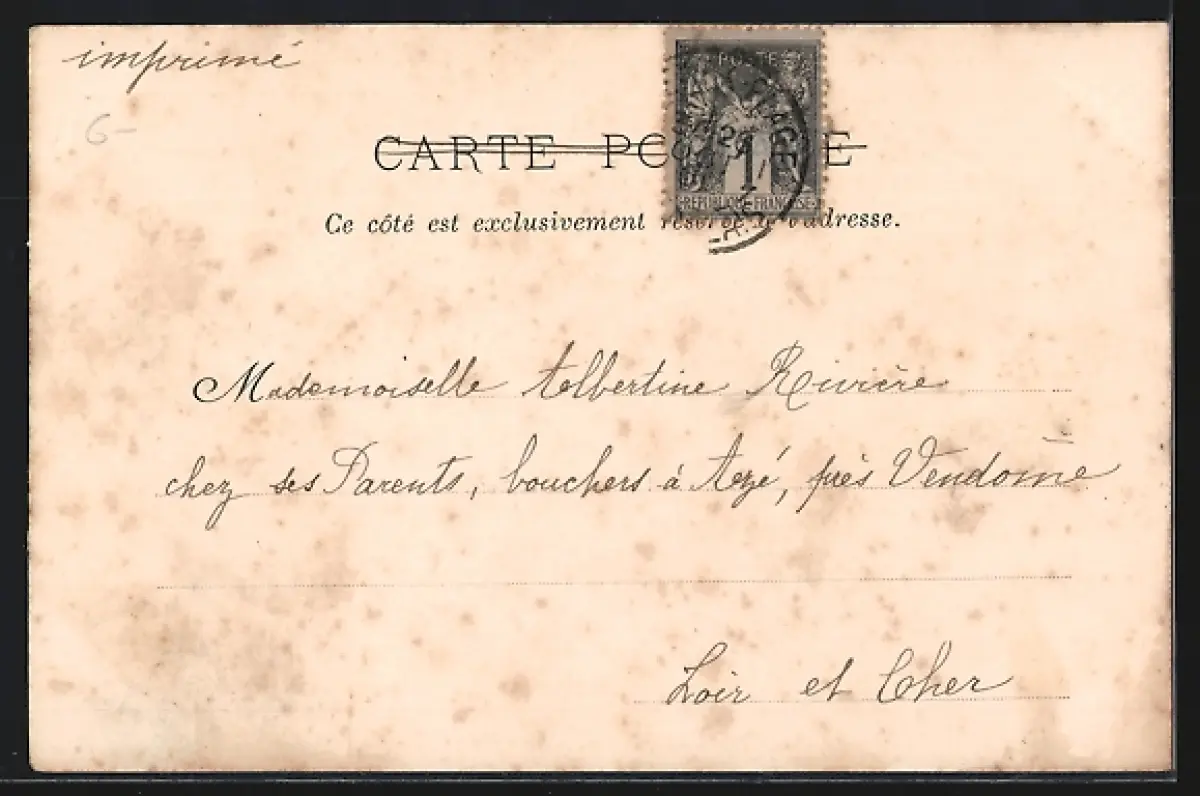 imprimé
6-
POSTE
CARTE POSTALE
1
REPUBLIQUE FRANÇAISE
Ce côté est exclusivement réservé à l'adresse.
Mademoiselle Albertine Rivière
chez ses Parents, bouchers à Azé, près Vendôme
Loir et Cher